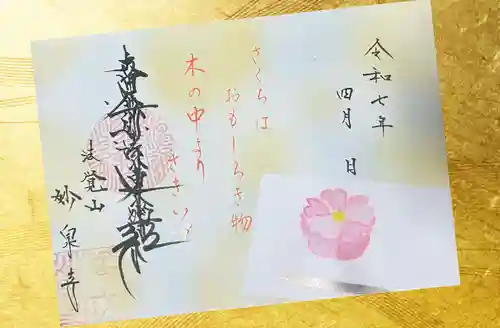 令和七年
四月 日
さくらは
おもしろき物
木の中より
さきいづ
南無妙法蓮華経
法覚山
妙泉寺